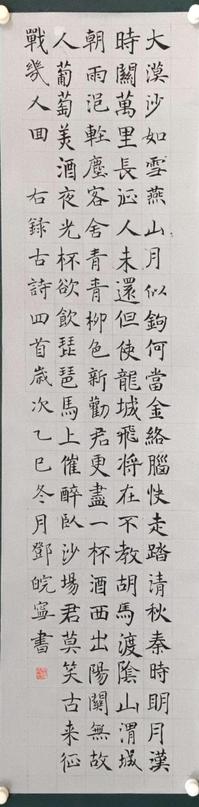 大漠沙如雪燕山月似鉤何當金絡腦快走踏清秋秦時明月漢
時關萬里長征人未還但使龍城飛将在不教胡馬渡陰山渭城
朝雨浥輕塵客舍青青柳色新勸君更盡一杯酒西出陽關無故
人葡萄美酒夜光杯欲飲琵琶馬上催醉臥沙場君莫笑古来征
戰幾人回 右録古詩四首歲次乙巳冬月鄧皖寧書